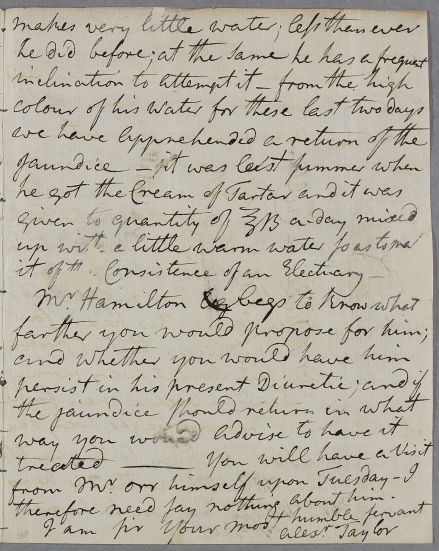 makes very little water; less than ever
he did before; at the same he has a frequent
inclination to attempt it – from the high
colour of his water for these last two days
we have apprehended a return of the
jaundice – it was last summer when
he got the Cream of Tartar and it was
given to quantity of ℥ß a day mixed
up with a little warm water so as to ma
it of th. Consistence of an Electuary –
Mr Hamilton begs to know what
farther you would propose for him;
and whether you would have him
persist in his present Diuretic; and if
the jaundice should return in what
way you would advise to have it
treated —— You will have a Visit
from Mr. Orr himself upon Tuesday – I
therefore need say nothing about him.
I am sir your most humble servant
Alexr Taylor